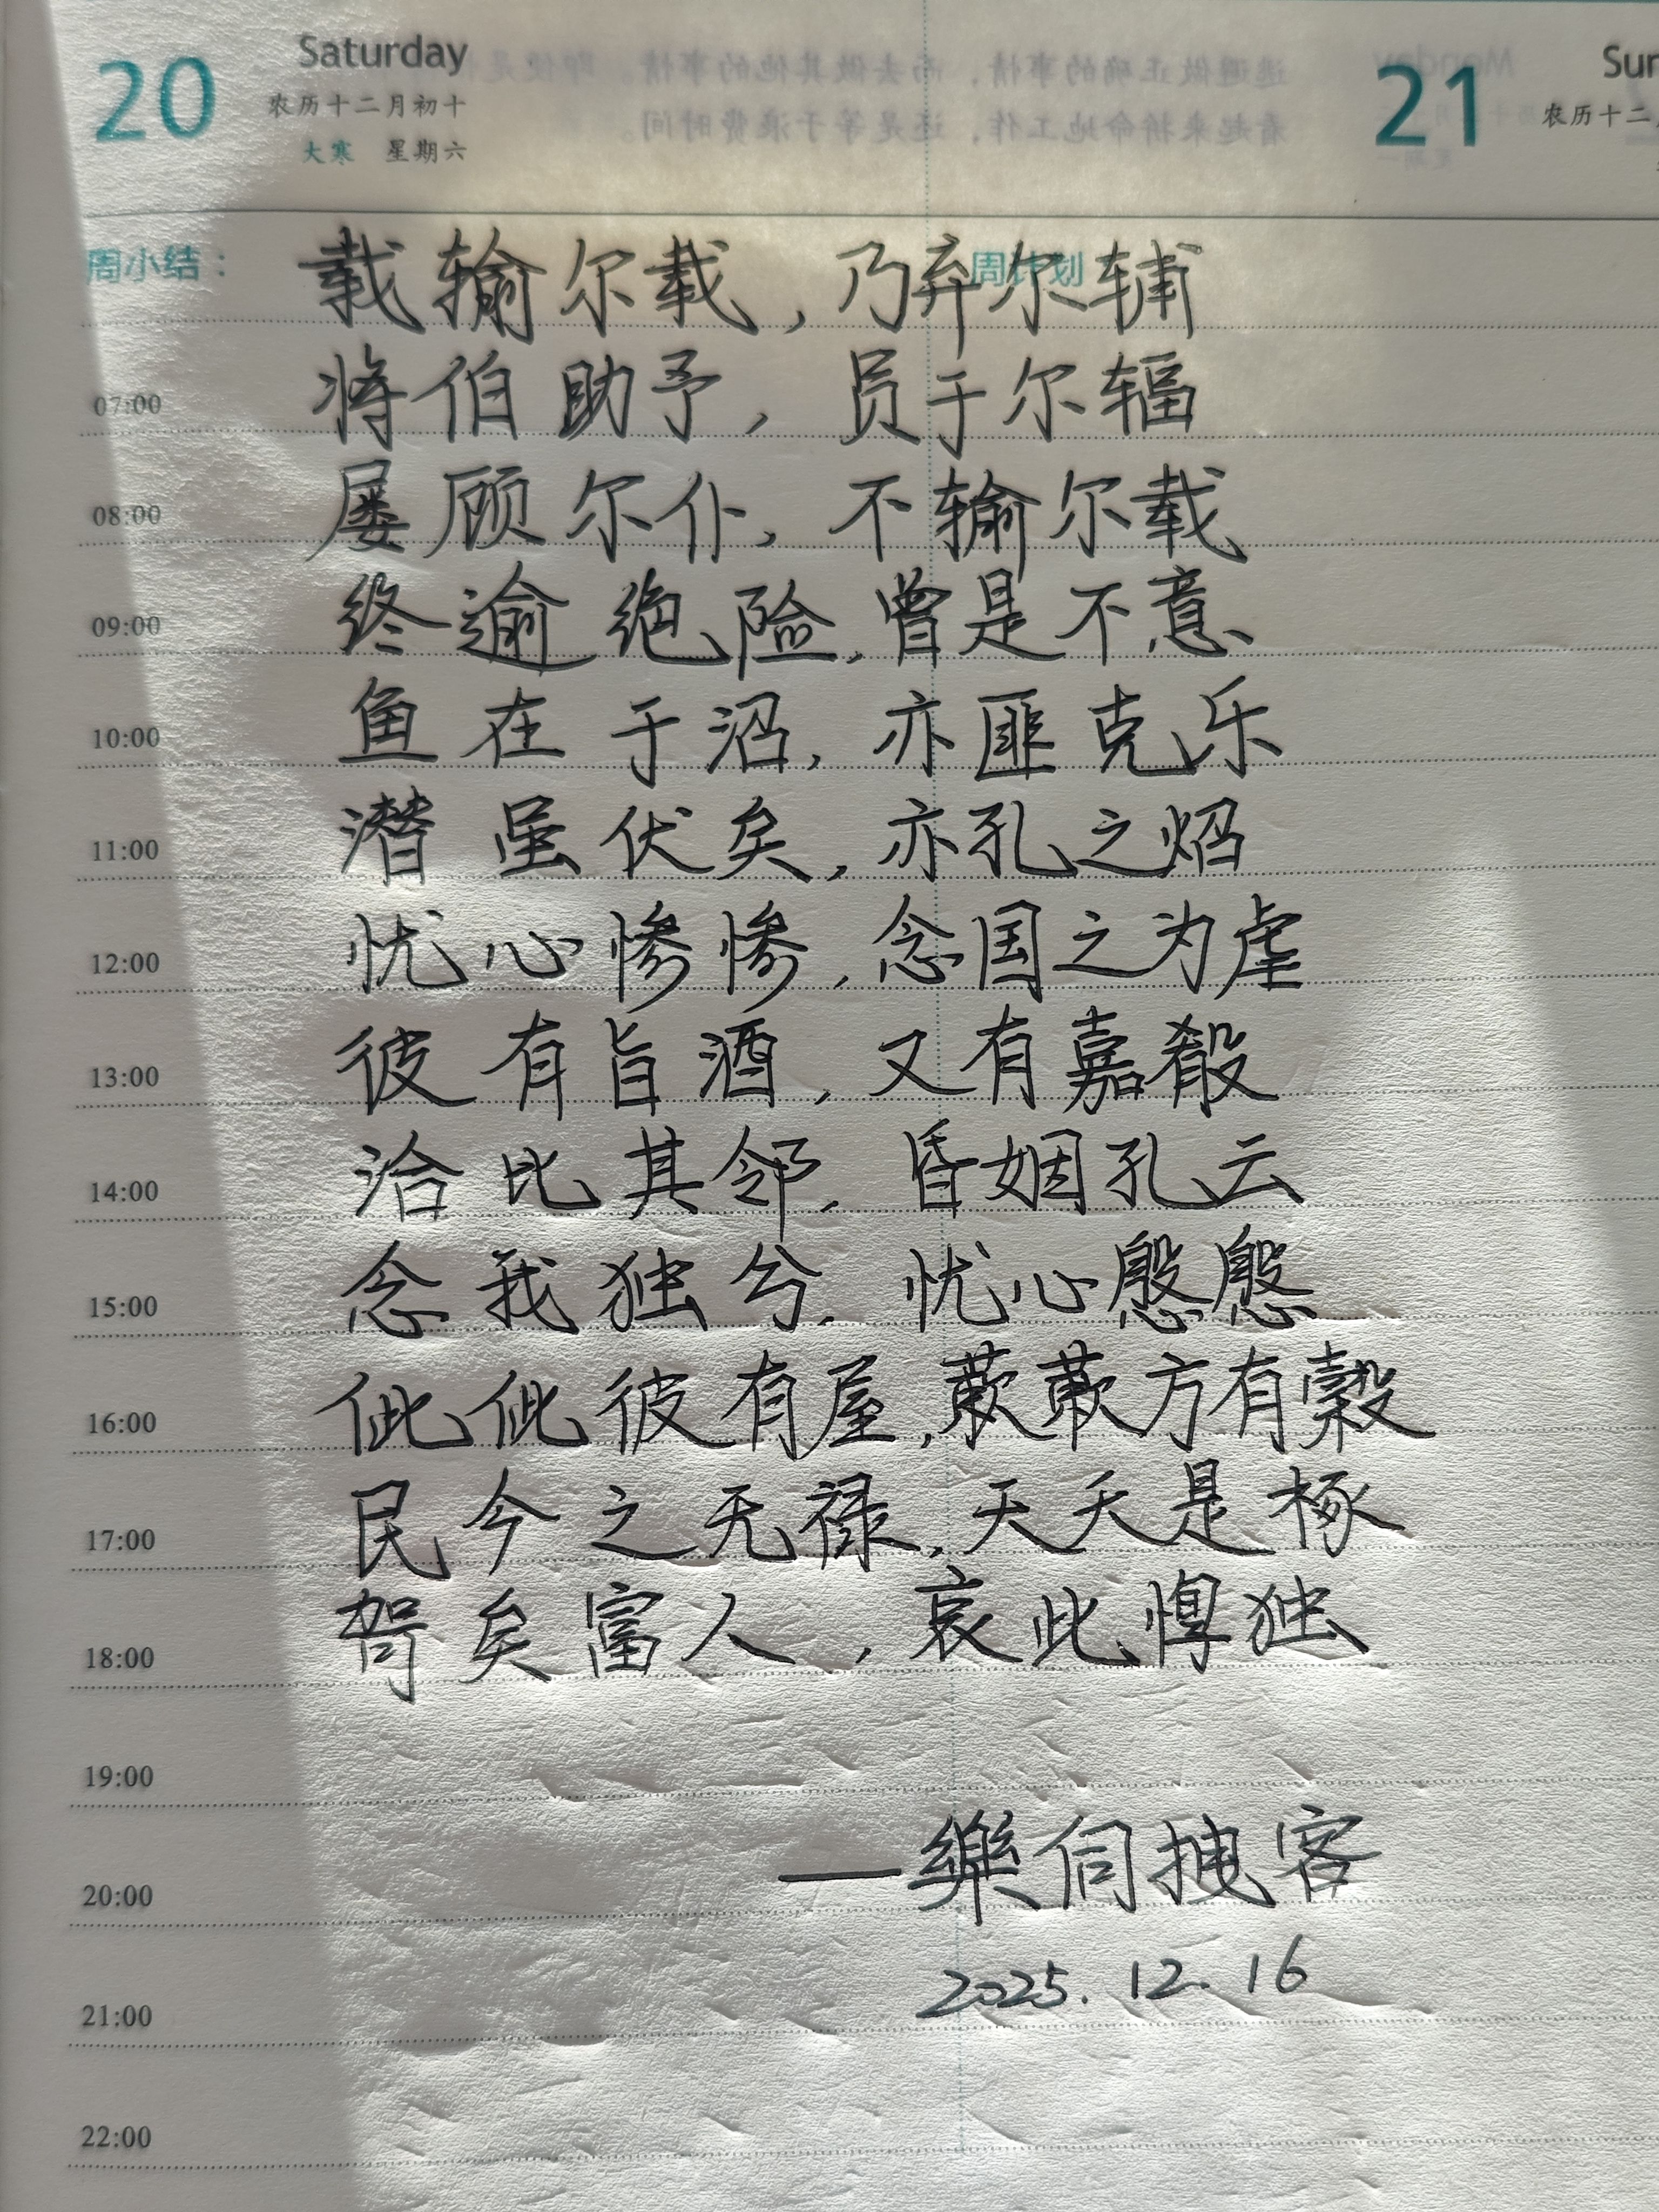 20
Saturday
农历十二月初十
大寒 星期六
21
Sun
农历十二
周小结：
周计划
载输尔载，乃弃尔辅
07:00 将伯助予，员于尔辐
08:00 屡顾尔仆，不输尔载
09:00 终逾绝险，曾是不意
10:00 鱼在于沼，亦匪克乐
11:00 潜虽伏矣，亦孔之炤
12:00 忧心惨惨，念国之为虐
13:00 彼有旨酒，又有嘉殽
14:00 洽比其邻，昏姻孔云
15:00 念我独兮，忧心慇慇
16:00 佌佌彼有屋，蔌蔌方有穀
17:00 民今之无禄，天夭是椓
18:00 哿矣富人，哀此惸独
19:00
20:00 —樂伺拽客
2025.12.16
21:00
22:00